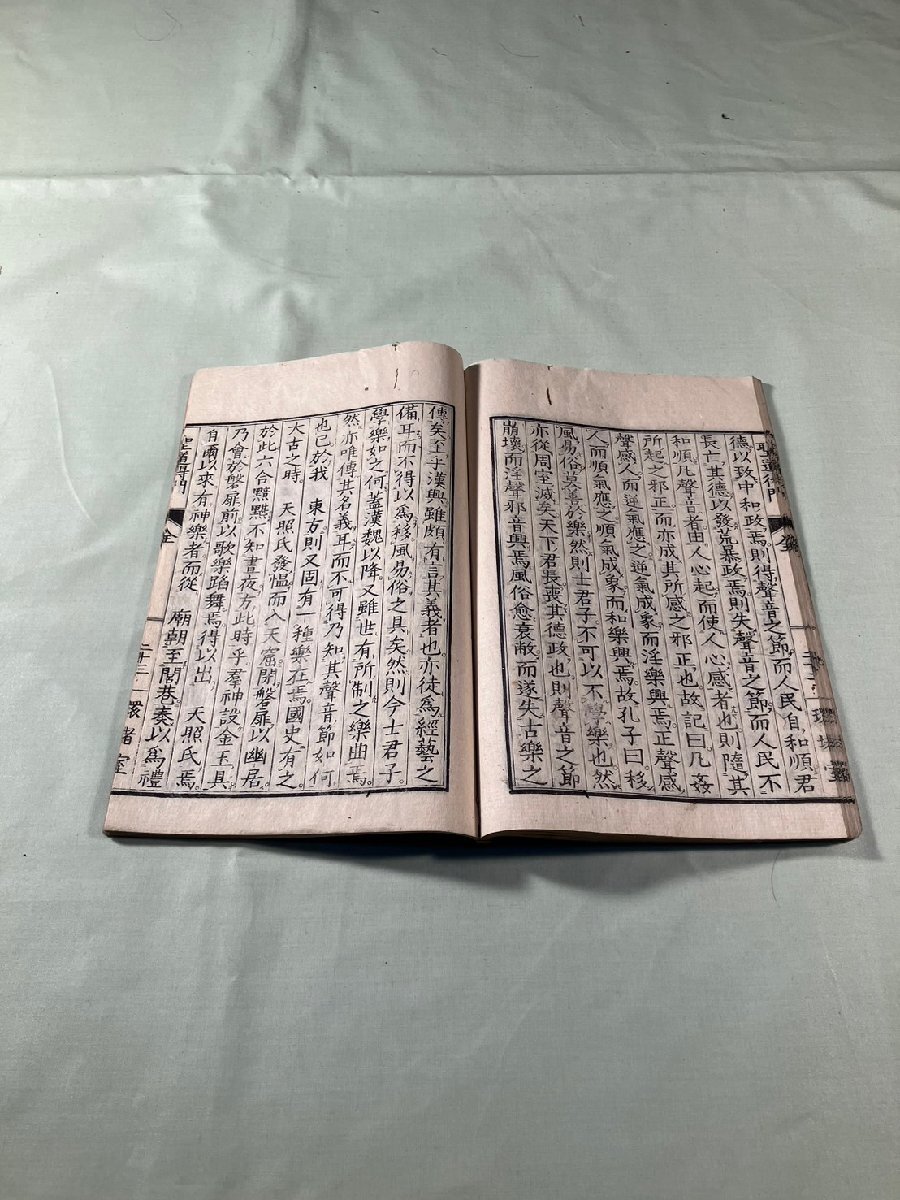 聖道得門
德以致中和政焉則得聲音之節而人民自和順君
長亡其德以發荒暴政焉則失聲音之節而人民不
和順凡聲音者由人心起而使人心感者也則隨其
所起之邪正而亦成其所感之邪正也故記曰凡姦
聲感人而逆氣應之逆氣成象而淫樂興焉正聲感
人而順氣應之順氣成象而和樂興焉故孔子曰移
風易俗莫善於樂然則士君子不可以不學樂也然
亦從周室滅矣天下君長喪其德政也則聲音之節
崩壞而淫聲邪音興焉風俗愈衰敝而遂失古樂之
傳矣至乎漢興雖頗有言其義者也亦徒爲經藝之
備耳而不得以爲移風易俗之具矣然則今士君子
學樂如之何蓋漢魏以降又雖世有所制之樂曲焉
然亦唯傳其名義耳而不可得乃知其聲音節如何
也已於我 東方則又固有一種樂在焉國史有之
大古之時 天照氏發慍而入天窟閉磐扉以幽居
於此六合黯黮不知晝夜方此時乎羣神設金玉具
乃會於磐扉前以歌樂蹈舞焉得以出 天照氏焉
自爾以來有神樂者而從 廟朝至閭巷奏以爲禮
聖道得門 全 二十三 環堵室